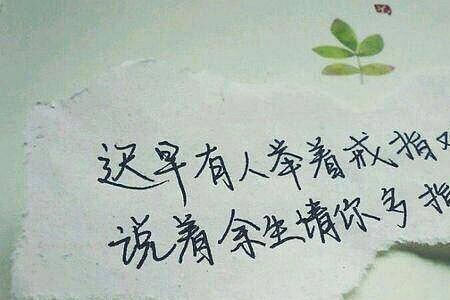 迟早有人举着戒指对
说着余生请你多指